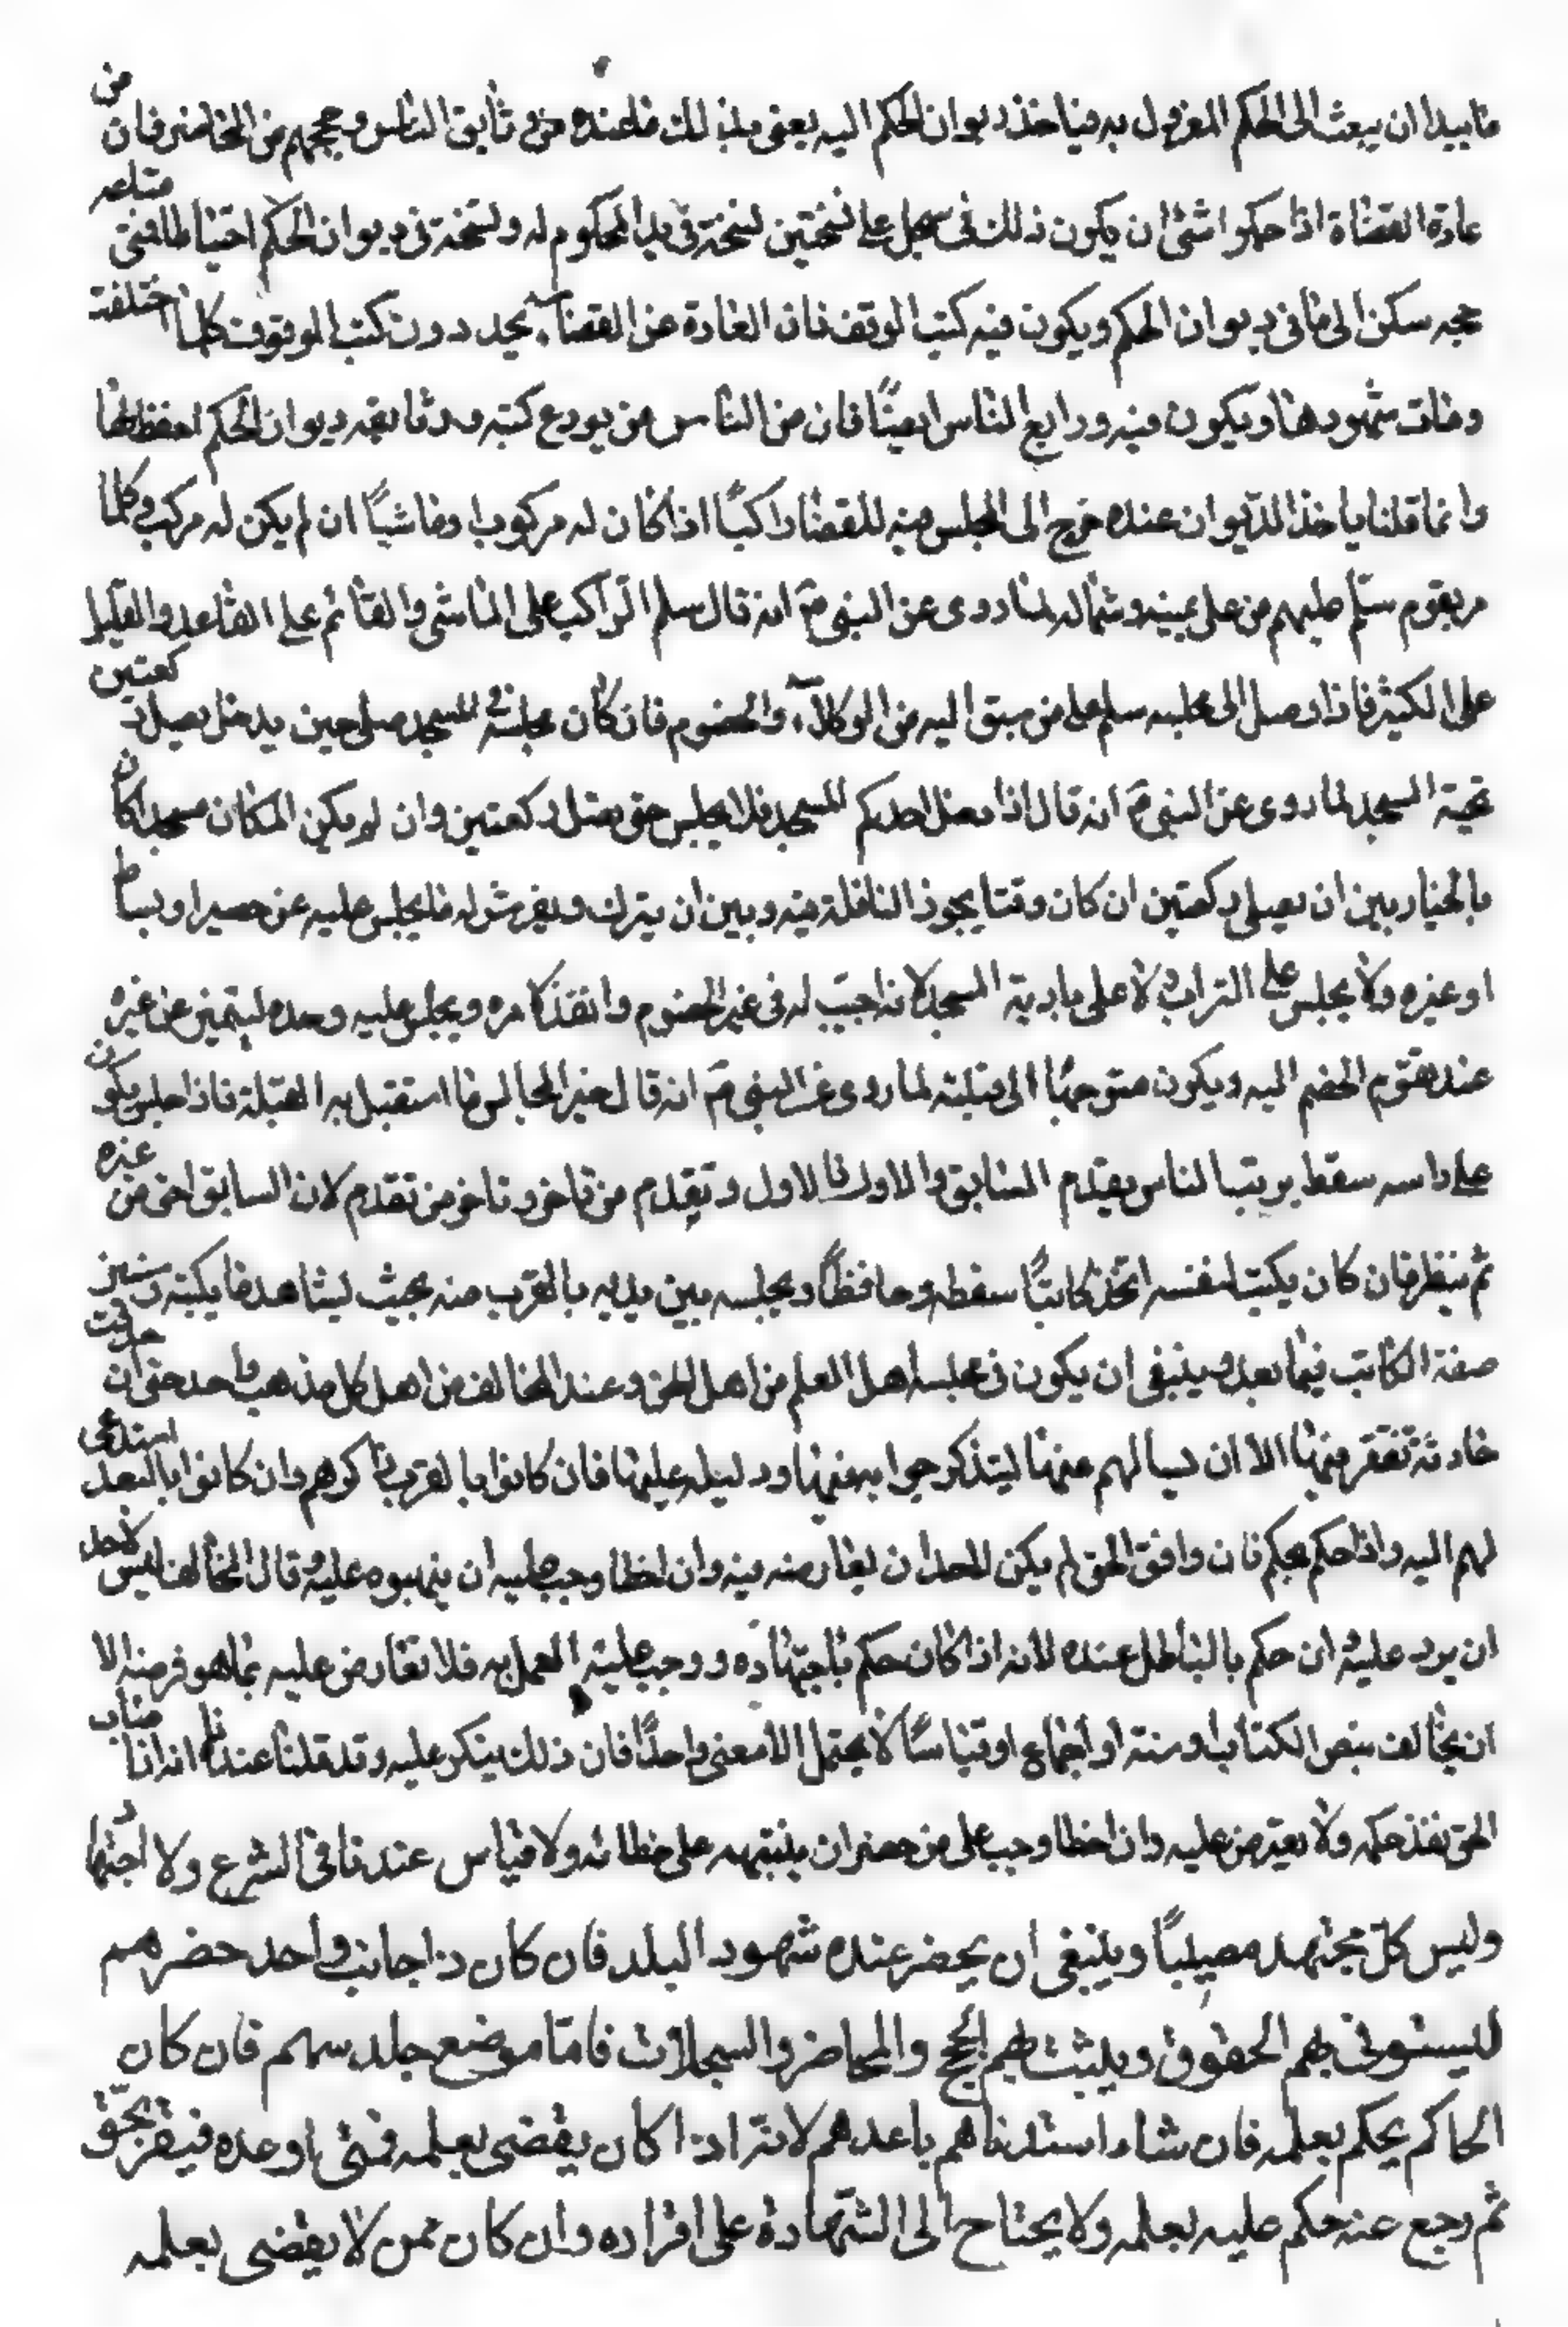 ما يبدا ان يبعث الى الحكم المعزول به فياخذ ديوان الحكم اليه يعنى بذلك ما عنده من وثايق الناس وحججهم من المحاضر فان من
عادة القضاة اذا حكموا بشئ ان يكون ذلك فى سجل على نسختين نسخة فى يد المحكوم له ونسخة فى ديوان الحكم احتياطا فمتى ضاعت
حجه سكن الى ما فى ديوان الحكم ويكون فيه كتب الوقف فان العادة عن القضاء يجددون كتب الوقوف كلما اختلفت
ومات شهودها ويكون فيه ودايع الناس ايضًا فان من الناس من يودع كتبه ووثايقه ديوان الحكم احفظ لها
وانما قلنا ياخذ الديوان عنده خرج الى المجلس منه للقضا راكبًا اذا كان له مركوب او ماشيًا ان لم يكن له مركب وكلما
مر بقوم سلّم عليهم من على يمينه وشماله لما روى عن النبى صَ انه قال سلم الراكب على الماشى والقائم على القاعد والقليل
على الكثير فاذا وصل الى مجلسه سلم على من سبق اليه من الوكلاء والخصوم فان كان مجلسه فى المسجد صلى حين يدخل يصلى ركعتين
تحية المسجد لما روى عن النبى صَ انه قال اذا دخل احدكم المسجد فلا يجلس حتى يصلى ركعتين وان لم يكن المكان مسجدا كان
بالخيار بين ان يصلى ركعتين ان كان وقتا يجوز النافلة فيه وبين ان يترك ويفرش له ما يجلس عليه من حصير او بساط
او غيره ولا يجلس على التراب ولا على بارية المسجد لانه اهيب له فى عين الخصوم وانفذ لامره ويجلس عليه وحده ليتميز عن غيره
عند تقدم الخصم اليه ويكون متوجهًا الى قبلته لما روى عن النبى صَ انه قال خير المجالس ما استقبل به القبلة فاذا جلس يكون
على راسه سقط يرتب الناس يقدم السابق والاول فالاول وتقدم من تاخر وتاخر من تقدم لان السابق احق من غيره
ثم ينظر فان كان يكتب لنفسه اتخذ كاتبًا سقطه وحافظًا ويجلسه بين يديه بالقرب منه بحيث يشاهد ما يكتبه وسنبين
صفة الكاتب فيما بعد وينبغى ان يكون فى مجلسه اهل العلم من اهل الحق وعند المخالف من اهل كل مذهب واحد حتى ان حدثت
حادثة تفتقر فيها الا ان يسالهم عنها ليتذكر جوابه فيها ودليله عليها فان كانوا بالقرب ذاكرهم وان كانوا بالبعد استدعى
لهم اليه واذا حكم بحكم فان وافق الحق لم يكن لاحد ان يعارضه فيه وان اخطا وجب عليه ان ينبهوه عليه وقال المخالف ليس لاحد
ان يرد عليه وان حكم بالباطل عنده لانه اذا كان حكم باجتهاده ووجب عليه العمل به فلا تعارض عليه بما هو فرضه الا
ان يخالف بنص الكتاب او سنة او اجماع او قياسًا لا يحتمل الا معنى واحدًا فان ذلك ينكر عليه وقد قلنا عندنا انه اذا اصاب
الحق نفذ حكمه ولا يعترض عليه وان اخطا وجب على من حضر ان ينبهه على خطائه ولا قياس عندنا فى الشرع ولا اجتهاد
وليس كل مجتهد مصيبًا وينبغى ان يحضر عنده شهود البلد فان كان ذا جانب واحد حضرهم
ليستوفى بهم الحقوق ويثبت بهم الحجج والمحاضر والسجلات فامّا موضع جلوسهم فان كان
الحاكم يحكم بعلمه فان شاء استدناهم باعدهم لانه اذا كان يقضى بعلمه فمتى اوعده فيقر بحق
ثم رجع عنه حكم عليه بعلمه ولا يحتاج الى الشهادة على اقراره وان كان ممن لا يقضى بعلمه